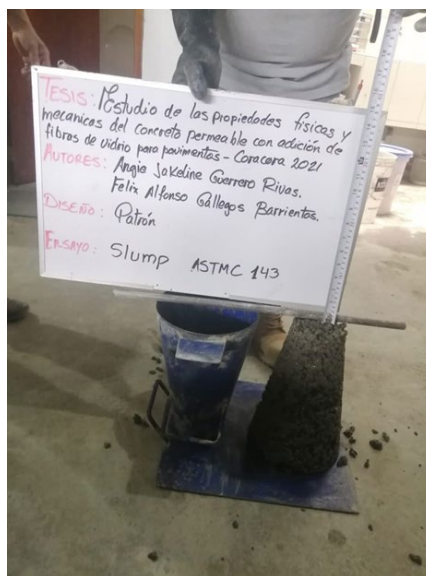 TESIS: "Estudio de las propiedades físicas y
mecanicas del concreto permeable con adición de
fibras de vidrio para pavimentos - Caracara 2021
AUTORES: Angie Jakeline Guerrero Rivas.
Felix Alfonso Gallegos Barrientos.
DISEÑO: Patrón
ENSAYO: Slump ASTMC 143